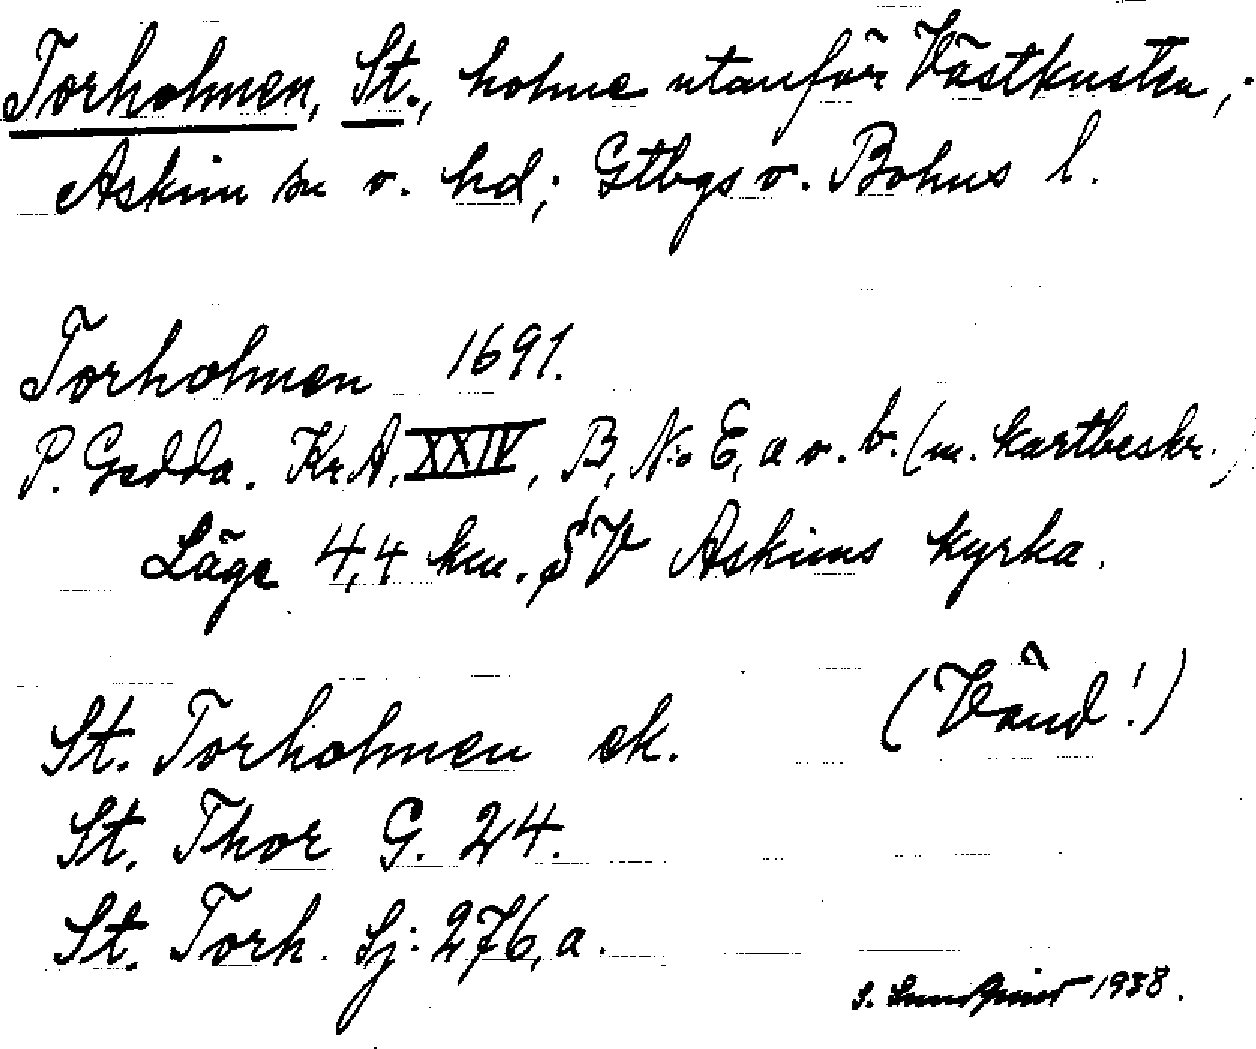 Torholmen, St., holme utanför Västkusten,
Askim sn o. hd; Gtbgs o. Bohus l.
Torholmen 1691.
P. Gedda. Kr.A. XXIV, B, No E, a o. b. (m. kartbeskr.)
Läge 4,4 km. SV Askims kyrka.
(Vänd!)
St. Torholmen ek.
St. Thor G. 24.
St. Torh. Sj: 276, a.
S. 1938.